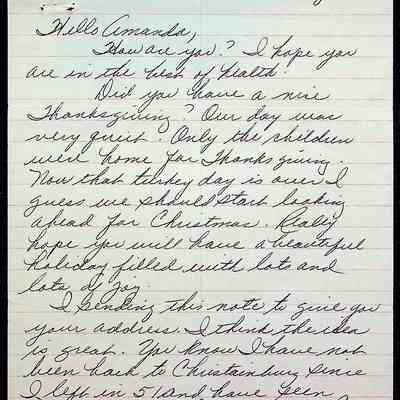 Hello Amanda,
How are you? I hope you
are in the best of health.
Did you have a nice
Thanksgiving? Our day was
very quiet. Only the children
were home for Thanksgiving.
Now that turkey day is over I
guess we should start looking
ahead for Christmas. Really
hope you will have a beautiful
holiday filled with lots and
lots of joy.
I sending this note to give you
your address. I think the idea
is great. You know I have not
been back to Christainburg since
I left in 51 and have seen